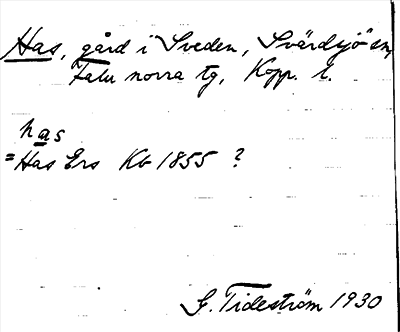 Has, gård i Sveden, Svärdsjö sn,
Falu norra tg, Kopp. l.
has
= Has Ers Kb 1855 ?
G. Tideström 1930